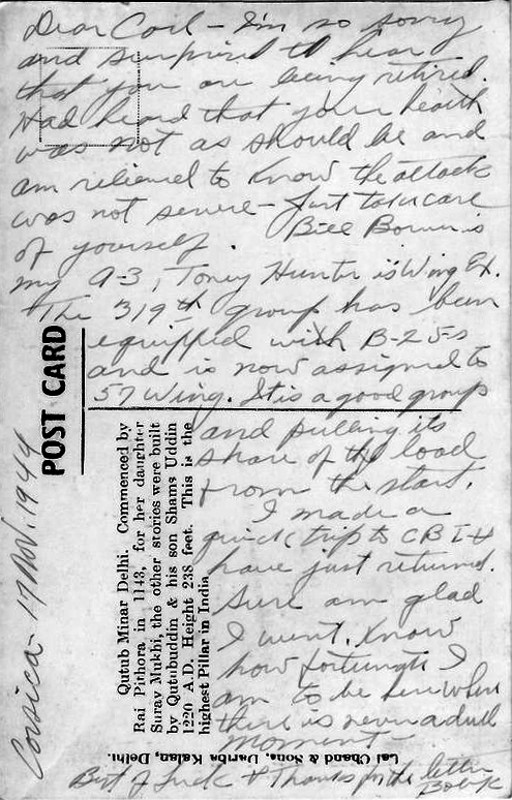 Dear Carl - I'm so sorry
and surprised to hear
that you are being retired.
Had heard that your health
was not as should be and
am relieved to know the attack
was not severe - Just take care
of yourself. Bill Bower is
my A-3, Toney Hunter is Wing Ex.
The 319th group has been
equipped with B-25s
and is now assigned to
57 Wing. It is a good group
and pulling its
share of the load
from the start.
I made a
quick trip to CBI &
have just returned.
Sure am glad
I went. Know
how fortunate I
am to be here where
there is never a dull
moment -
Best of Luck & Thanks for the letter
Corsica - 17 Nov. 1944
POST CARD
Qutub Minar Delhi. Commenced by
Rai Pithora in 1143, for her daughter
Suray Mukhi, the other stories were built
by Qutubuddin & his son Shams Uddin
1220 A.D. Height 238 feet. This is the
highest Pillar in India.
Lal Chand & Sons, Dariba Kalan, Delhi.